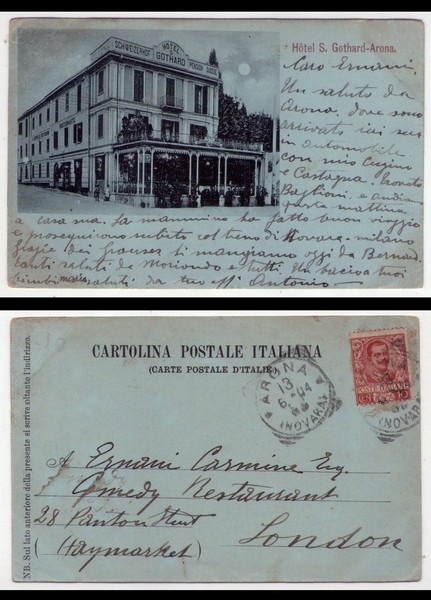 SCHWEIZERHOF
HOTEL
S. GOTHARD
PENSION SUISSE
Hôtel S. Gothard-Arona.
Caro Ernani,
Un saluto da
Arona, dove sono
arrivato ieri sera
in automobile
con mio Cugino
e Castagna. Trovato
Baglioni. e andiam
questa mattina
a casa sua. La mammina ha fatto buon viaggio
e proseguirono subito col treno di Novara-Milano
Grazie dei Grouses li mangiamo oggi da Bernard
tanti saluti da Moriondo e tutti. Un bacio a tuoi
bimbi saluti da tuo aff Antonio
CARTOLINA POSTALE ITALIANA
(CARTE POSTALE D'ITALIE)
NB. Sul lato anteriore della presente si scrive soltanto l'indirizzo.
ARONA
13
(NOVARA)
POSTE ITALIANE
10
(NOVARA)
A Ernani Carmine Esq.
Comedy Restaurant
28 Panton Street
(Haymarket)
London